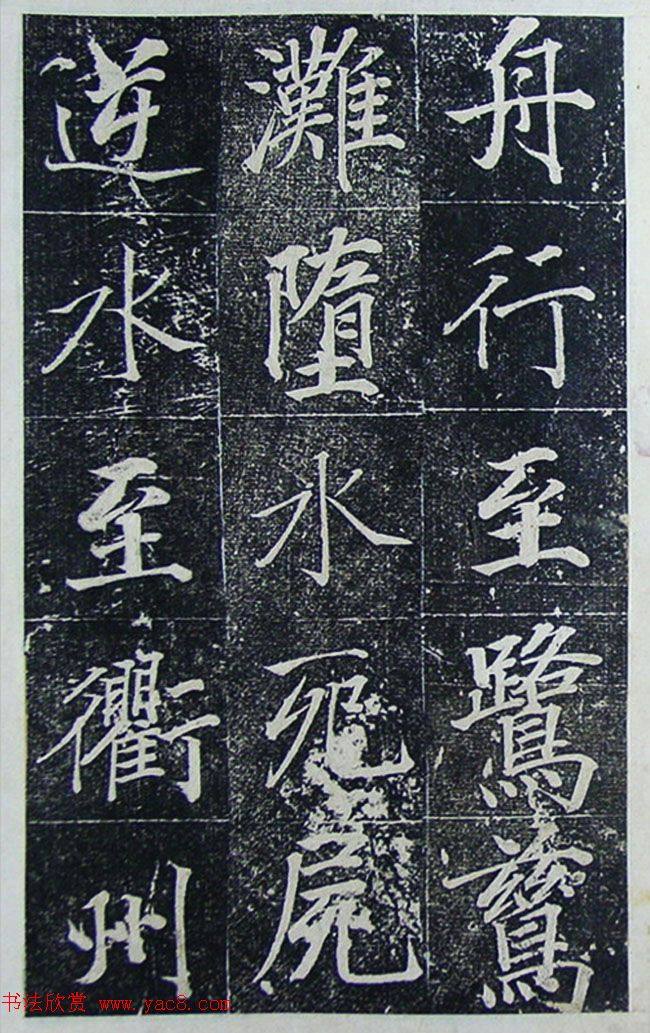 舟行至鷺鶿
灘墮水死屍
逆水至衢州
书法欣赏 www.yac8.com